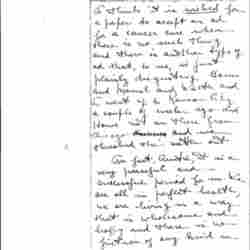 I think it is wicked for
a paper to accept an ad
for a cancer cure when
there is no such thing
and there is another type of
ad that, to me, is just
plainly disgusting. Bess
and and and
I went up to Kansas City
a couple of weeks ago and
there from
and we
the
In fact, it is a
very peaceful and
successful period for us. We
are all in perfect health,
we are living in a way
that is wholesome and
happy and there is no
picture of any kind in